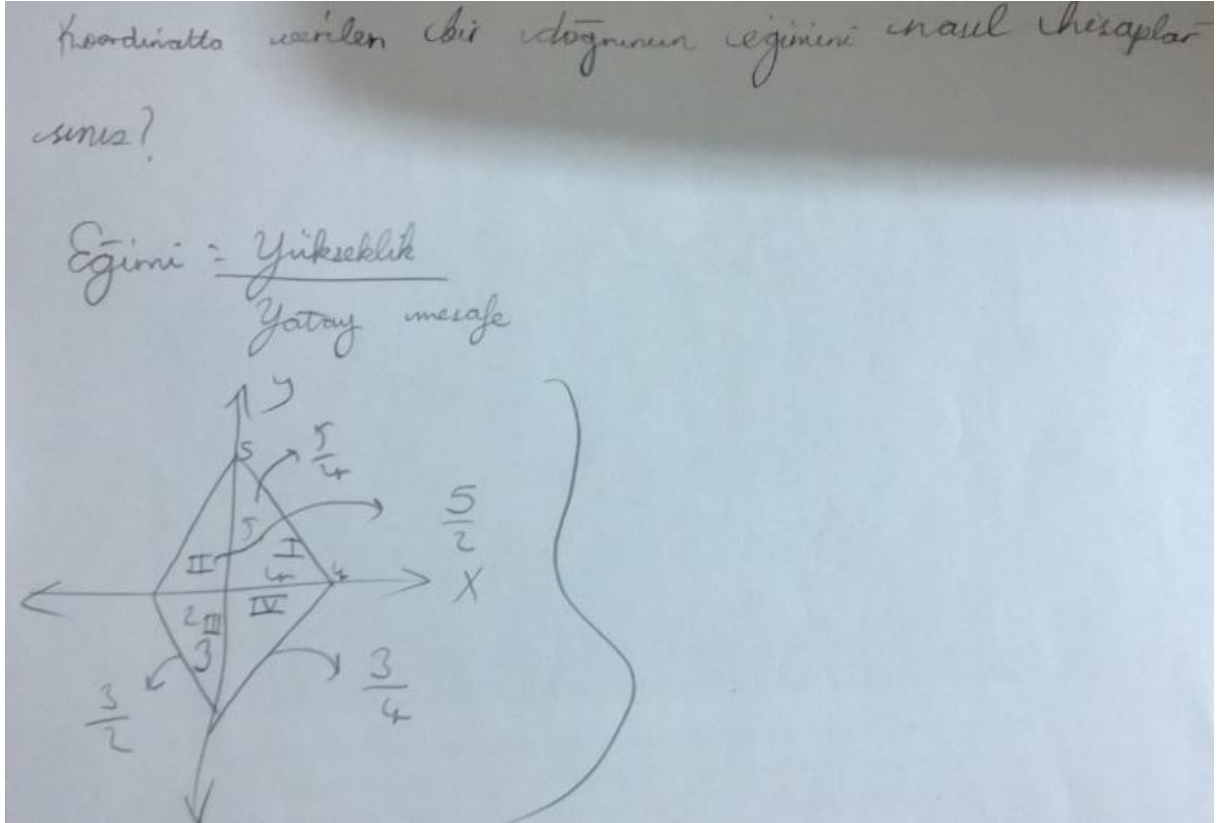 Koordinatta verilen bir doğrunun eğimini nasıl hesaplar
sınız?
Eğimi = Yükseklik
Yatay mesafe
y
5
5/4
5
5/2
II
I
4
4
X
2
III
IV
3
3/2
3/4